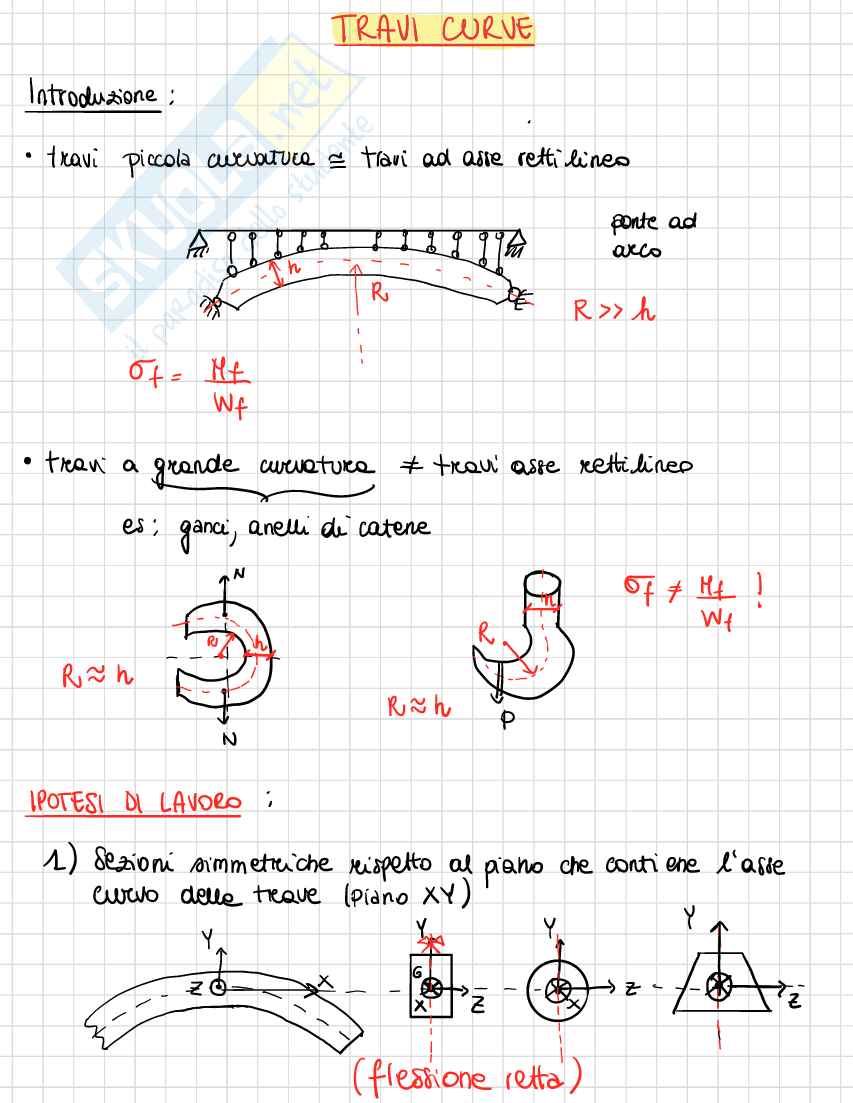 TRAVI CURVE
Introduzione :
• travi piccola curvatura ≅ travi ad asse rettilineo
ponte ad
arco
h
R
R >> h
σf = Mf / Wf
• travi a grande curvatura ≠ travi asse rettilineo
es: ganci, anelli di catene
N
h
R
h
R
σf ≠ Mf / Wf !
R ≈ h
R ≈ h
N
P
IPOTESI DI LAVORO :
1) Sezioni simmetriche rispetto al piano che contiene l'asse
curvo della trave (piano XY)
Y
Y
Y
Y
Z
X
G
X
Z
X
Z
Z
(flessione retta)
SKUOLA.net
il paradiso dello studente